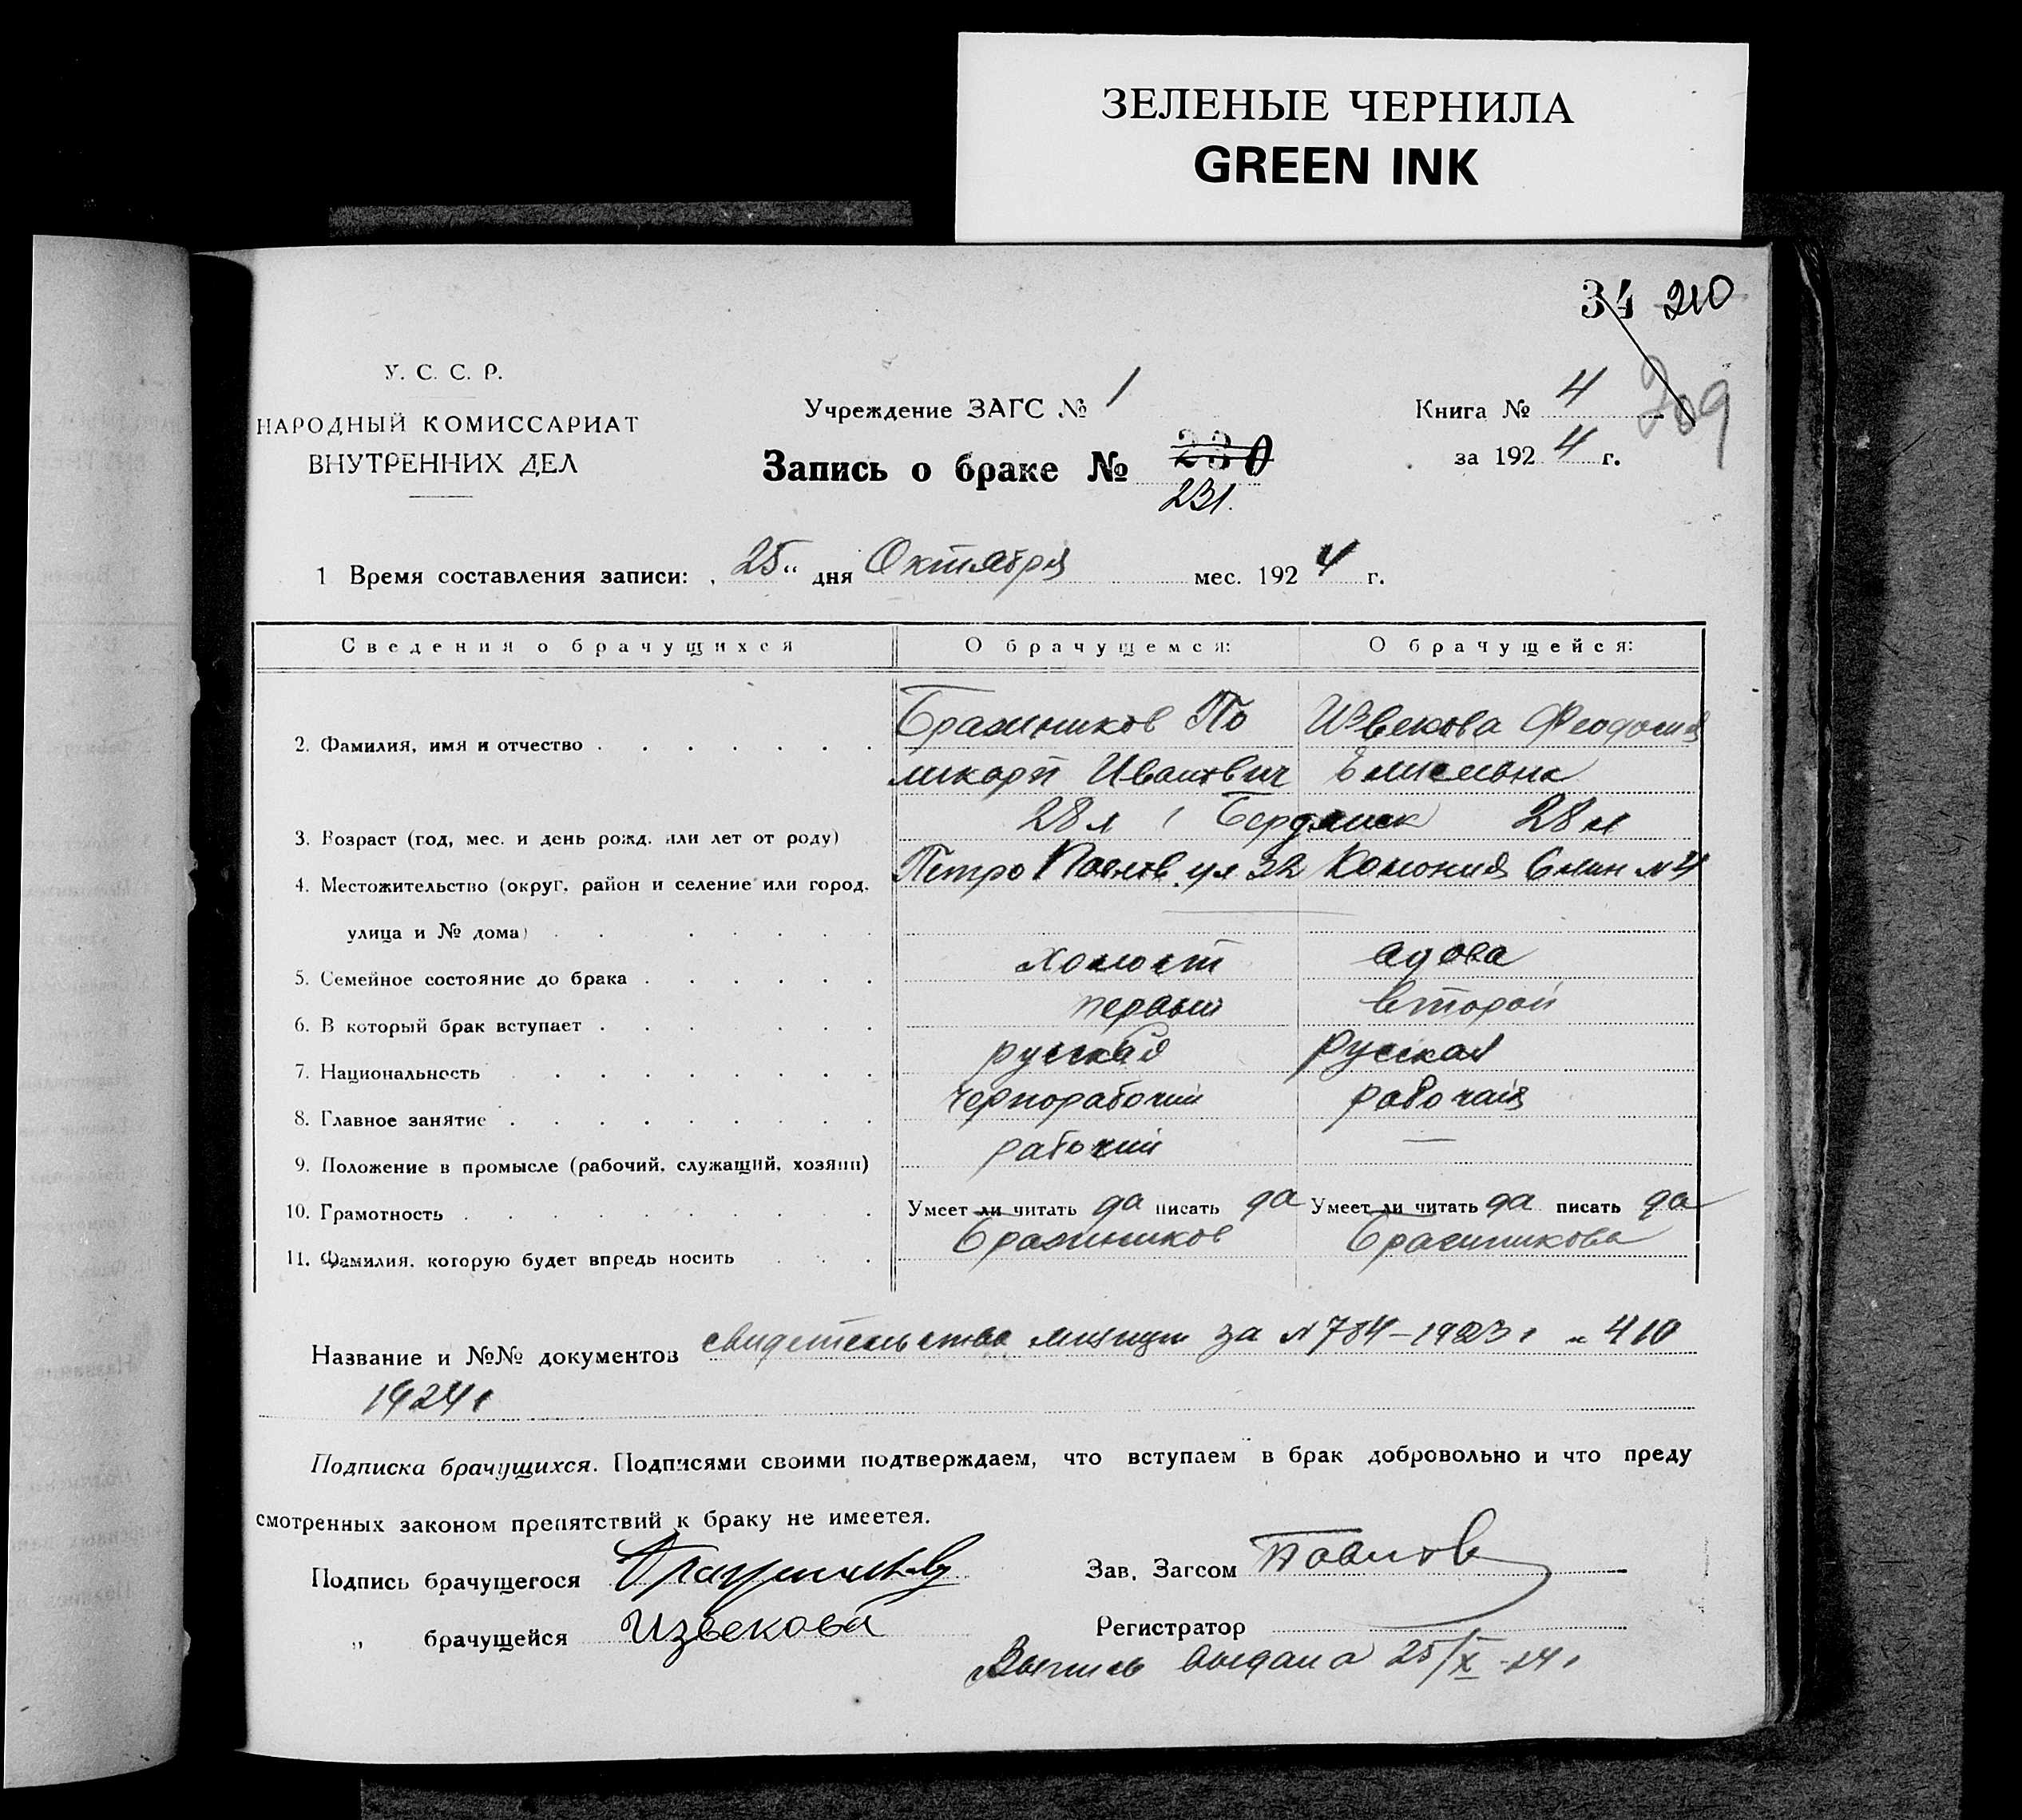 ЗЕЛЕНЫЕ ЧЕРНИЛА
GREEN INK
34 210
209
У. С. С. Р.
НАРОДНЫЙ КОМИССАРИАТ
ВНУТРЕННИХ ДЕЛ
Учреждение ЗАГС № 1
Книга № 4
за 1924 г.
Запись о браке № 230
231.
1 Время составления записи: „25“ дня Октября мес. 1924 г.
Сведения о брачущихся О брачущемся: О брачущейся:
2. Фамилия, имя и отчество Бражников По Извекова Феодосия
ликарп Иванович
3. Возраст (год, мес. и день рожд. или лет от роду) 28 л г Бердянск 28 л
4. Местожительство (округ, район и селение или город, Петро Павлов. ул 32 Колония
улица и № дома)
5. Семейное состояние до брака холост вдова
6. В который брак вступает первый второй
7. Национальность русская Русская
8. Главное занятие чернорабочий рабочая
9. Положение в промысле (рабочий, служащий, хозяин) рабочий —
10. Грамотность Умеет ли читать да писать да Умеет ли читать да писать да
11. Фамилия, которую будет впредь носить Бражников Бражникова
Название и №№ документов свидетельства милиции за № 784–1923 г и 410
1924 г
Подписка брачущихся. Подписями своими подтверждаем, что вступаем в брак добровольно и что преду
смотренных законом препятствий к браку не имеется.
Подпись брачущегося Бражников Зав. Загсом Павлов
„ брачущейся Извекова Регистратор
Выпись выдана 25/X-24 г